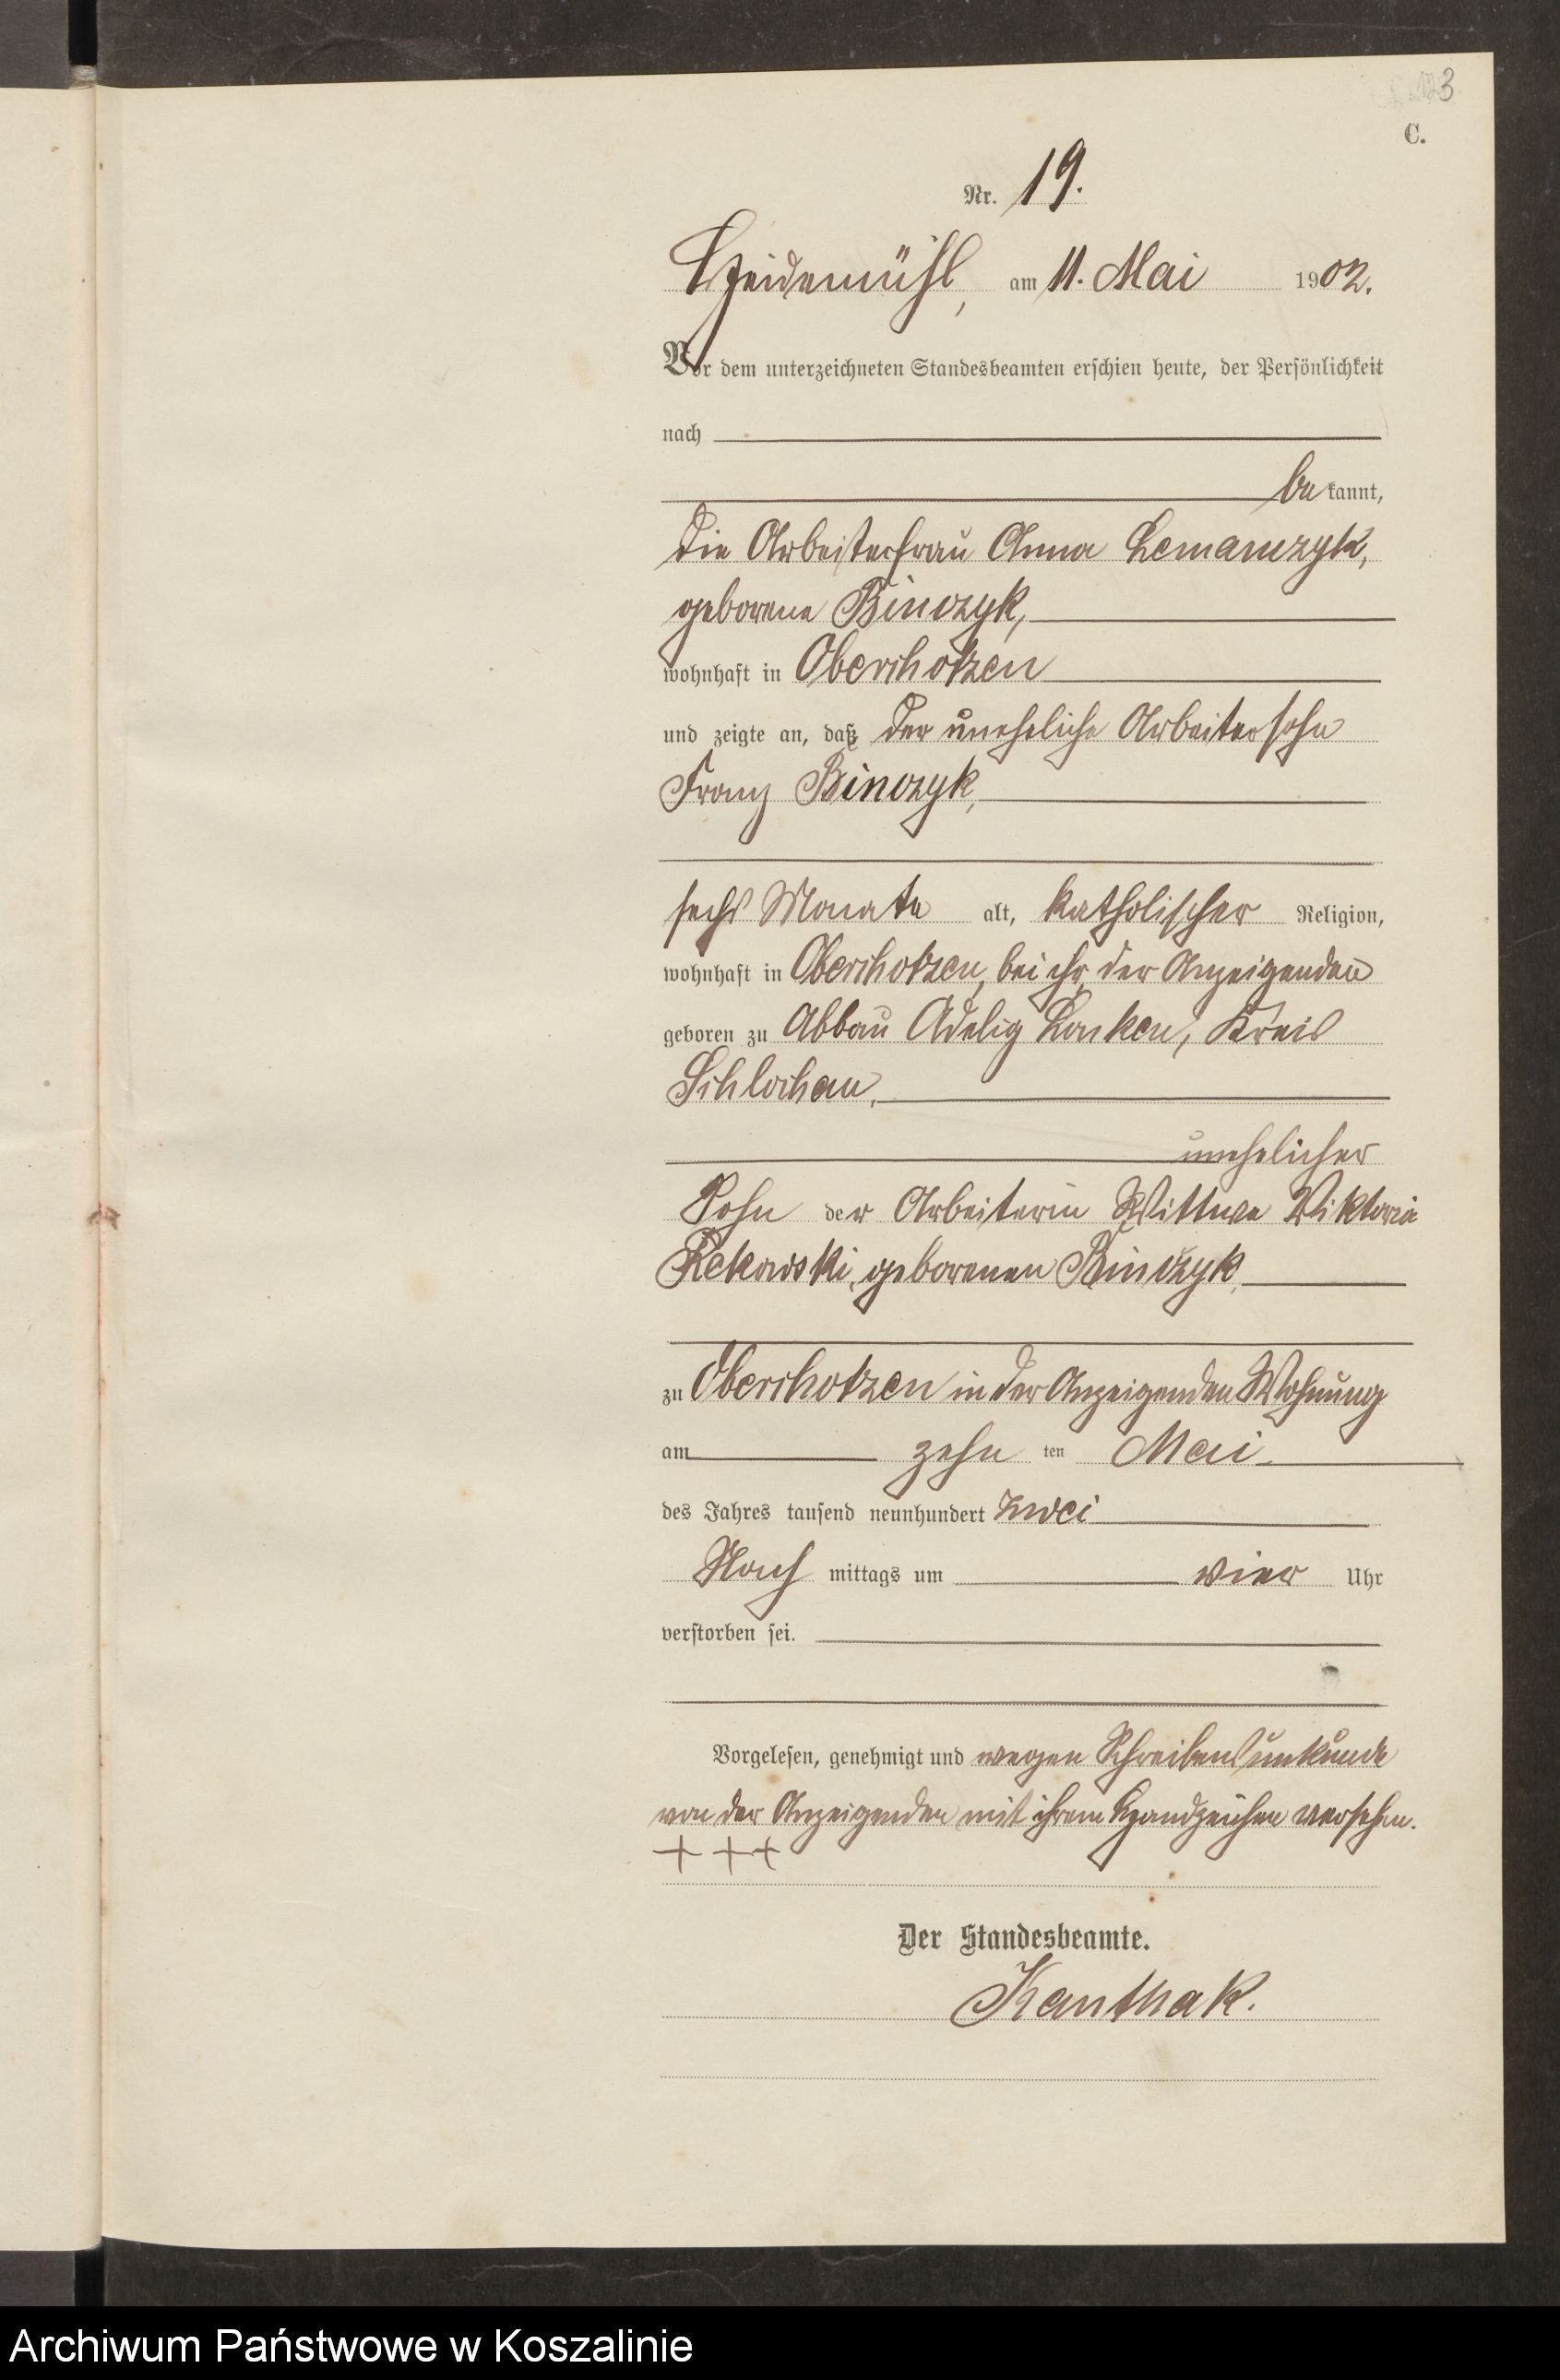 3
C.
Nr. 19.
Heidemühl, am 11. Mai 1902.
Vor dem unterzeichneten Standesbeamten erschien heute, der Persönlichkeit
nach
bekannt,
die Arbeiterfrau Anna Lemanczyk,
geborene Binczyk,
wohnhaft in Oberchotzen
und zeigte an, daß der uneheliche Arbeitersohn
Franz Binczyk,
sechs Monate alt, katholischer Religion,
wohnhaft in Oberchotzen, bei ihr, der Anzeigenden
geboren zu Abbau Adelig Lonken, Kreis
Schlochau,
unehelicher
Sohn der Arbeiterin Wittwe Wiktoria
Rekowski, geborenen Binczyk,
zu Oberchotzen in der Anzeigenden Wohnung
am zehn ten Mai
des Jahres tausend neunhundert zwei
Nach mittags um vier Uhr
verstorben sei.
Vorgelesen, genehmigt und wegen Schreibensunkunde
von der Anzeigenden mit ihrem Handzeichen versehen.
+ + +
Der Standesbeamte.
Kanthak.
Archiwum Państwowe w Koszalinie